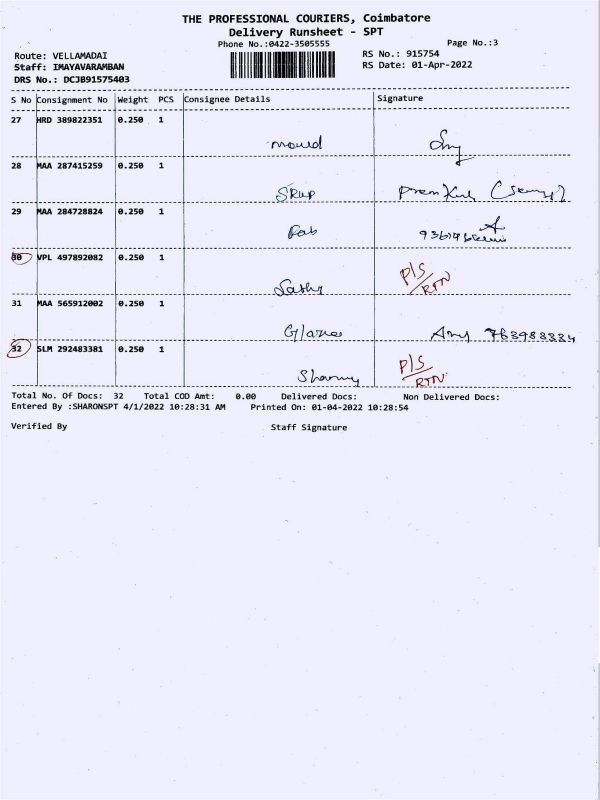 THE PROFESSIONAL COURIERS, Coimbatore
Delivery Runsheet - SPT
Phone No.:0422-3505555 Page No.:3
Route: VELLAMADAI RS No.: 915754
Staff: IMAYAVARAMBAN RS Date: 01-Apr-2022
DRS No.: DCJB91575403
S No Consignment No Weight PCS Consignee Details Signature
27 HRD 389822351 0.250 1
mould
28 MAA 287415259 0.250 1
29 MAA 284728824 0.250 1
Fab
30 VPL 497892082 0.250 1 P/S
RTN
Sathy
31 MAA 565912002 0.250 1
32 SLM 292483381 0.250 1 P/S
RTN
Total No. Of Docs: 32 Total COD Amt: 0.00 Delivered Docs: Non Delivered Docs:
Entered By :SHARONSPT 4/1/2022 10:28:31 AM Printed On: 01-04-2022 10:28:54
Verified By Staff Signature